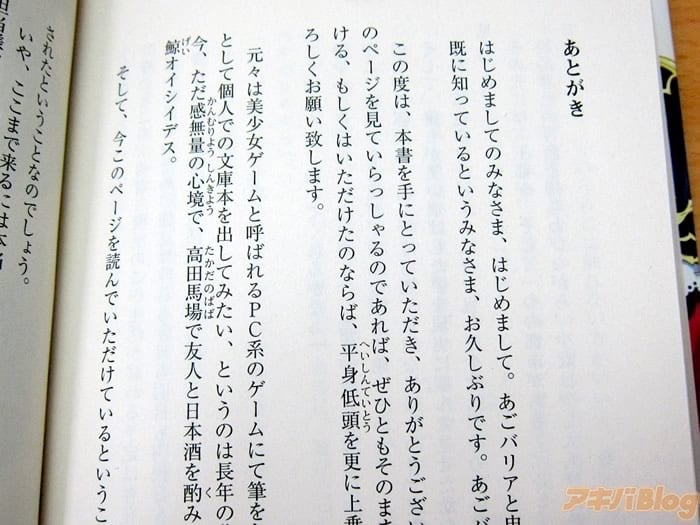 あとがき
はじめましてのみなさま、はじめまして。あごバリアと申
既に知っているというみなさま、お久しぶりです。あごバ
この度は、本書を手にとっていただき、ありがとうござい
のページを見ていらっしゃるのであれば、ぜひともそのまま
ける、もしくはいただけたのならば、平身低頭を更に上乗
へいしんていとう
ろしくお願い致します。
元々は美少女ゲームと呼ばれるPC系のゲームにて筆を
として個人での文庫本を出してみたい、というのは長年の
今、ただ感無量の心境で、高田馬場で友人と日本酒を酌み
かんむりょう しんきょう たかだのばば く
鯨オイシイデス。
げい
そして、今このページを読んでいただけているというこ
されたということなのでしょう。
いや、ここまで来るには本当
担当様
アキバBlog